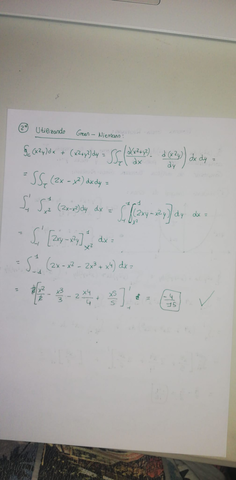 2º Utilizando Green-Riemann:
∮ (x²y)dx + (x²+y²)dy = ∬_I (d(x²+y²)/dx - d(x²y)/dy) dx dy =
= ∬_I (2x - x²) dx dy =
∫ ∫_{x²}^{1} (2x-x²)dy dx = ∫ [(2xy - x²y] dy dx =
= ∫ [2xy - x²y]_{x²}^{1} dx =
= ∫_{-1}^{1} (2x - x² - 2x³ + x⁴) dx =
= [x²/2 - x³/3 - 2 x⁴/4 + x⁵/5] = -4/15 ✓